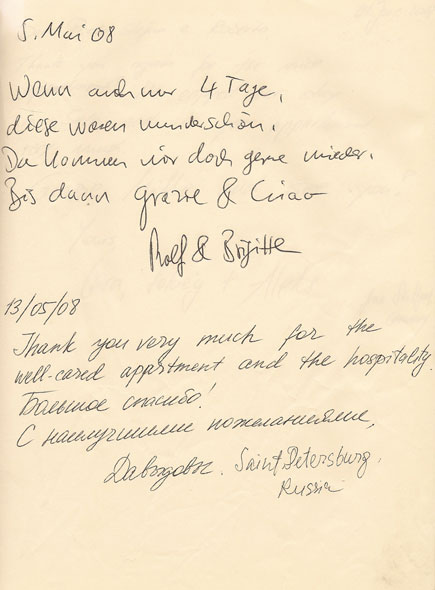 5. Mai 08
Wenn auch nur 4 Tage,
diese waren wunderschön.
Da kommen wir doch gerne wieder.
Bis dann Grazie & Ciao
Rolf & Brigitte
13/05/08
Thank you very much for the
well-cared appartment and the hospitality.
Большое спасибо!
С наилучшими пожеланиями,
Давыдовы. Saint Petersburg,
Russia